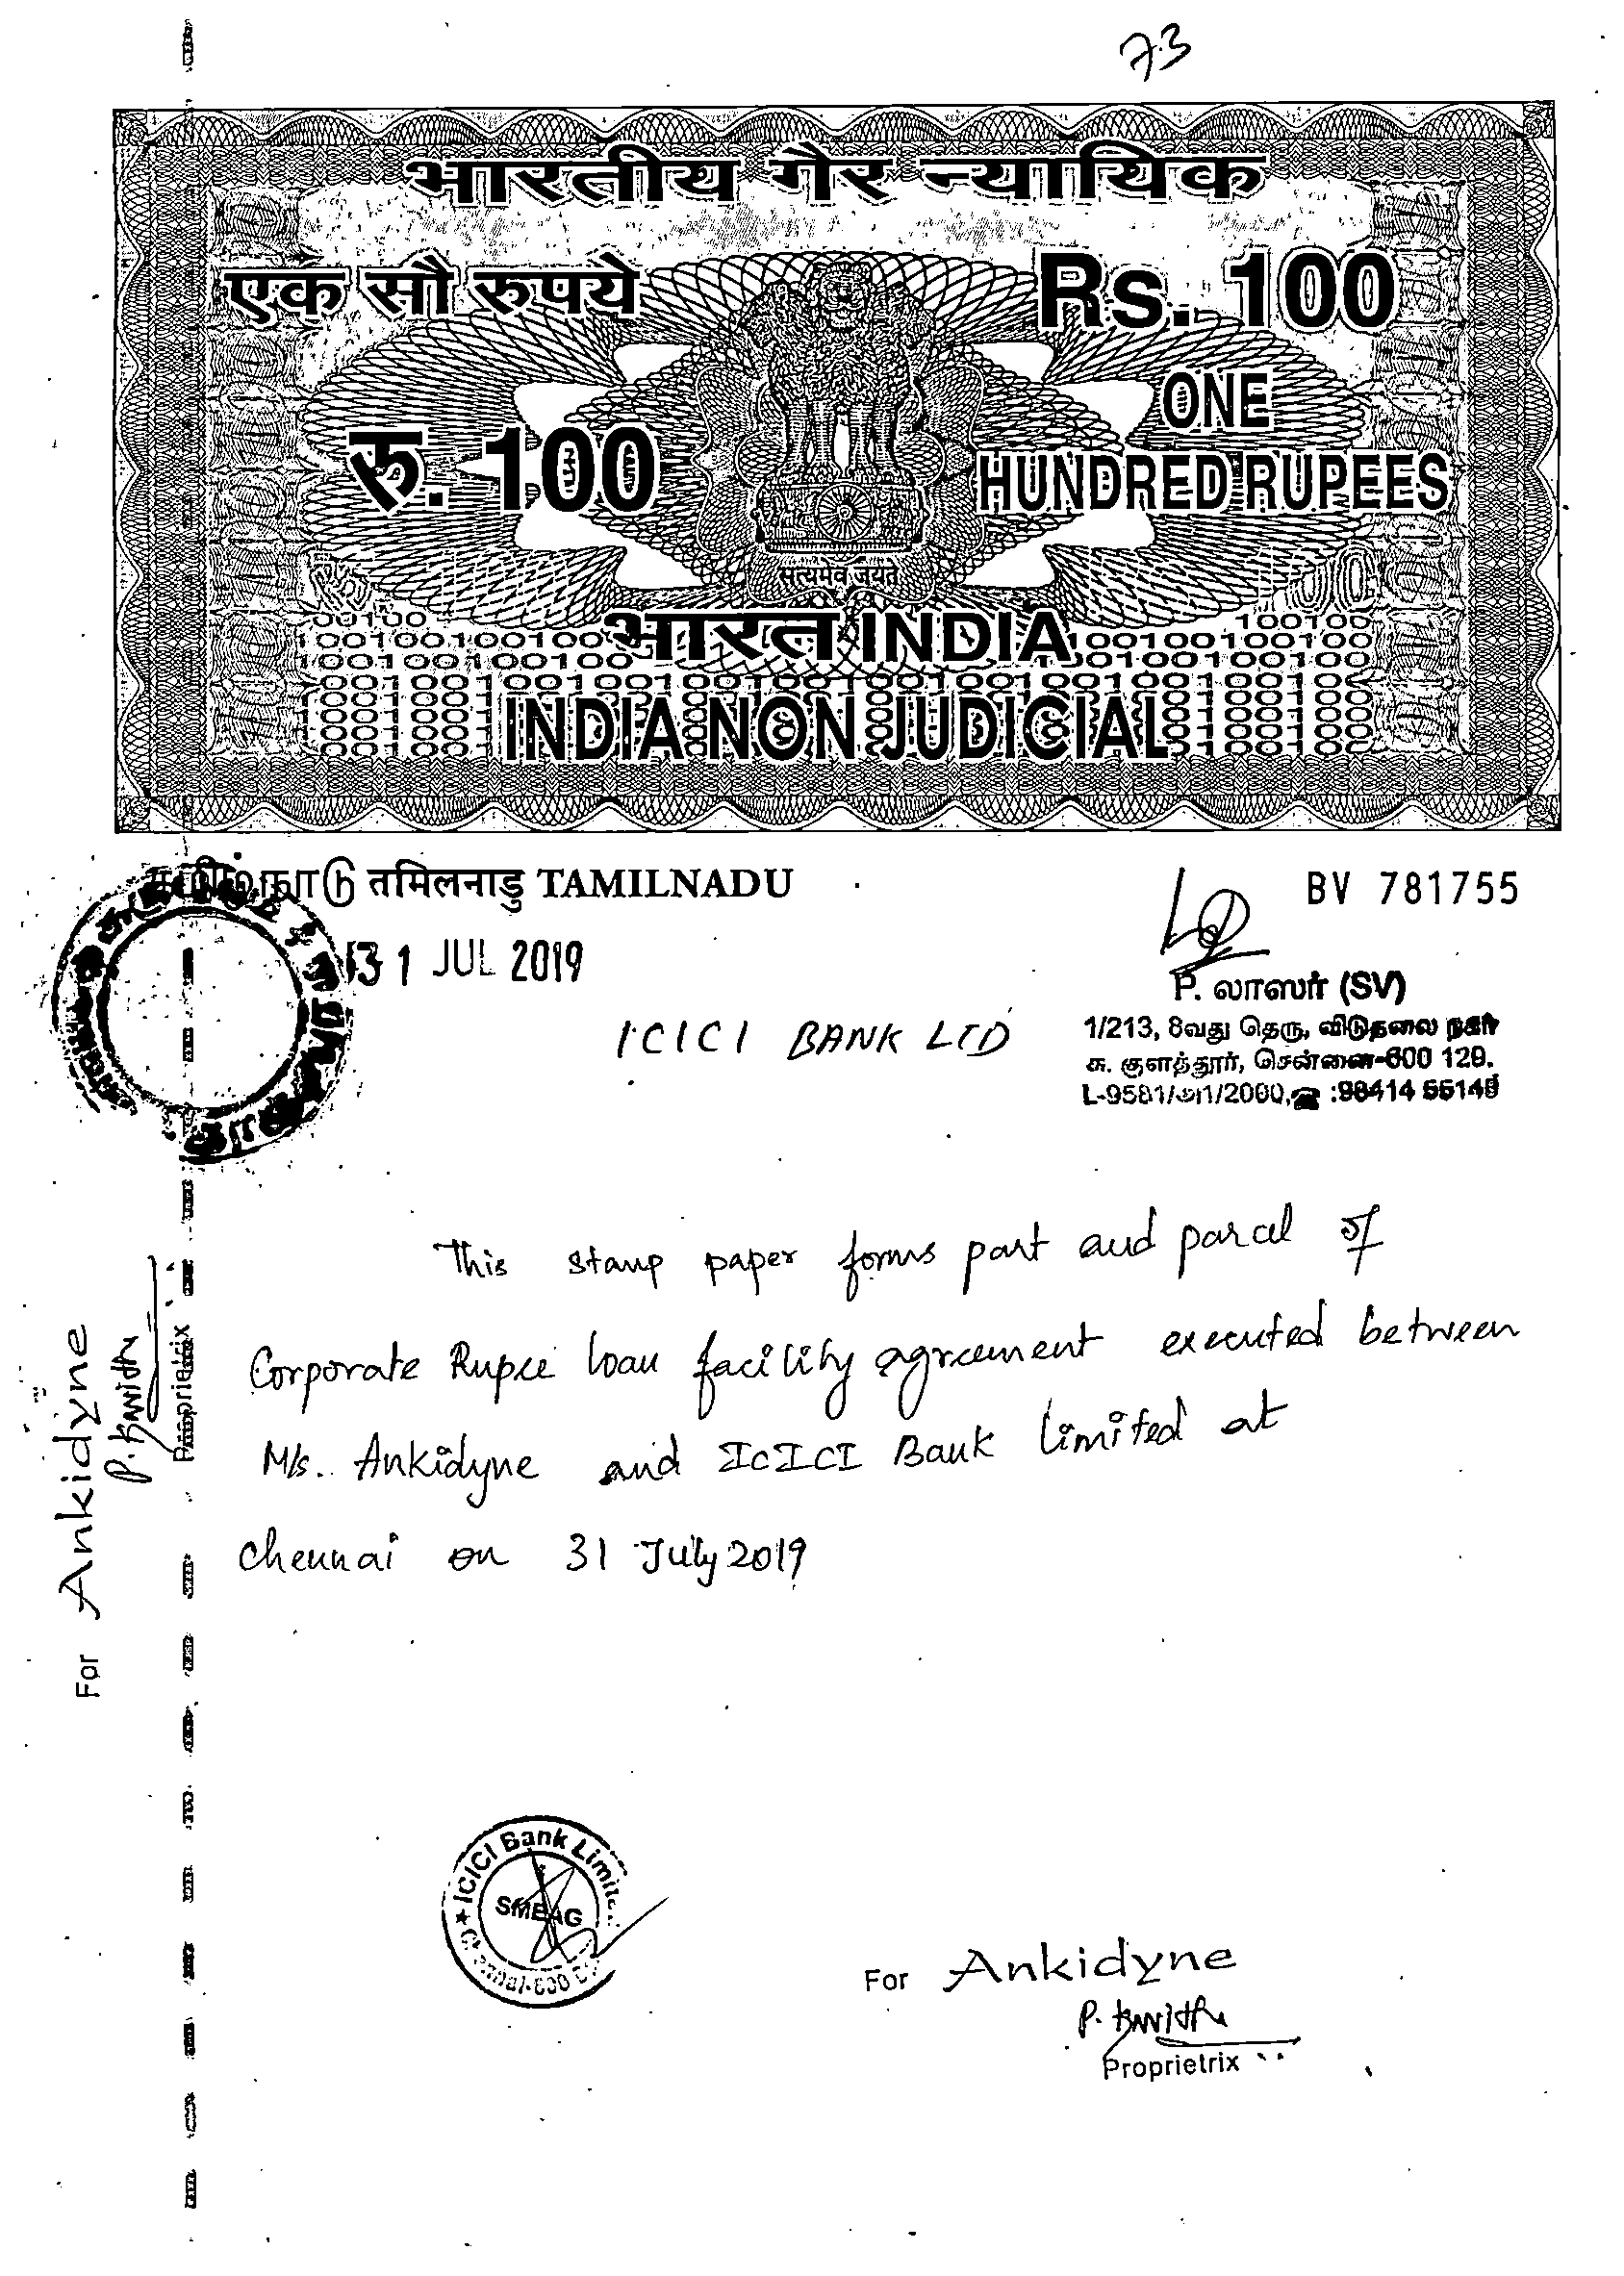 73
भारतीय गैर न्यायिक
एक सौ रुपये
Rs. 100
रु. 100
ONE
HUNDRED RUPEES
सत्यमेव जयते
भारत INDIA
INDIA NON JUDICIAL
தமிழ்நாடு तमिलनाडु TAMILNADU
BV 781755
31 JUL 2019
ICICI BANK LTD
P. லாஸர் (SV)
1/213, 8வது தெரு, விடுதலை நகர்
சு. குளத்தூர், சென்னை-600 129.
This stamp paper forms part and parcal of
Corporate Rupee loan facility agreement executed between
M/s. Ankidyne and ICICI Bank Limited at
Chennai on 31 July 2019
For Ankidyne
Proprietrix
ICICI Bank
SMEAG
For Ankidyne
Proprietrix